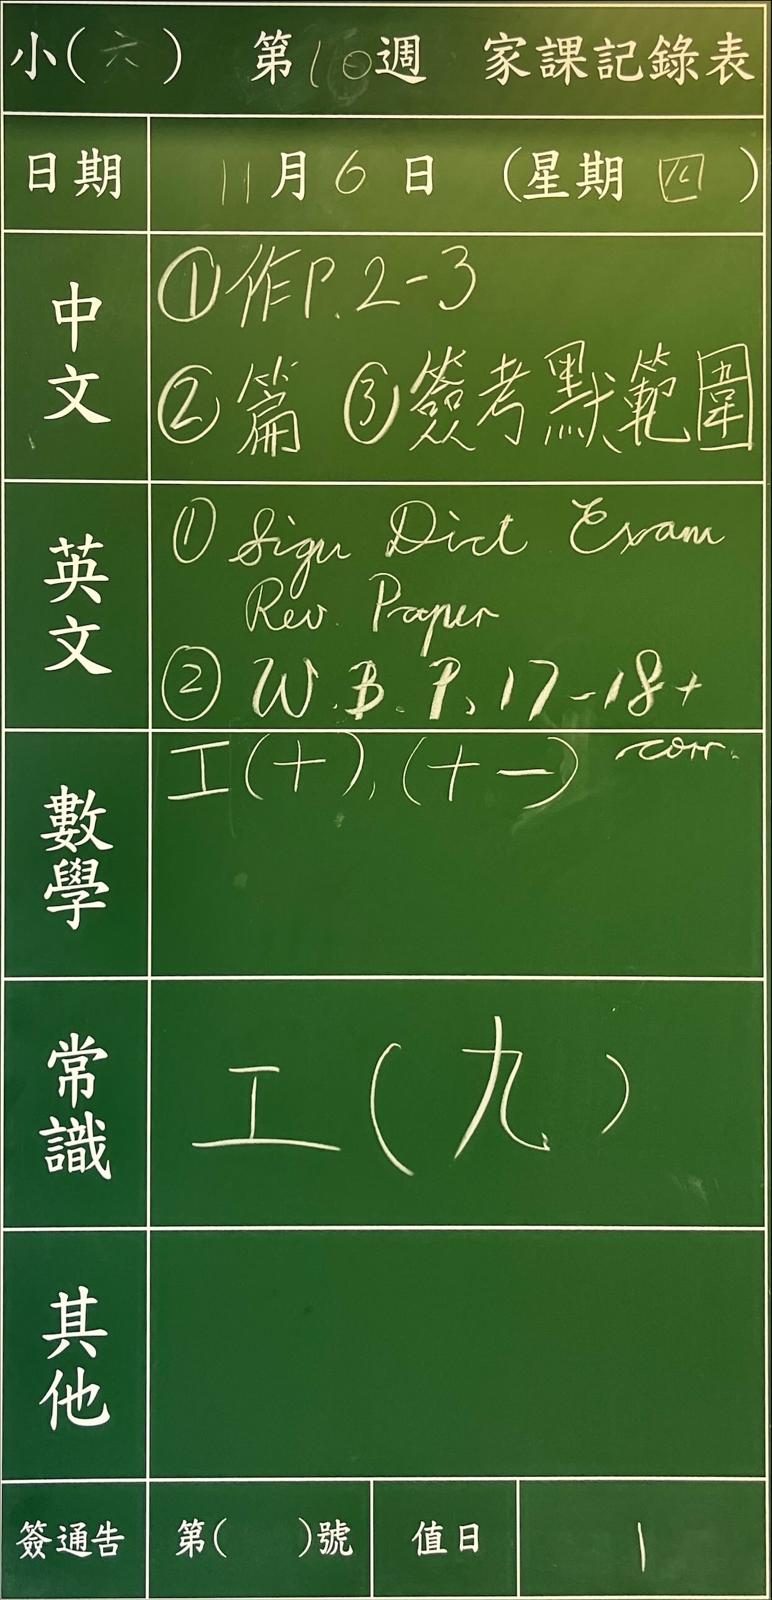 小(六) 第10週 家課記錄表
日期 11月6日 (星期四)
中文 ①作P.2-3
②篇 ③簽考默範圍
英文 ① Sign Dict Exam
Rev. Paper
② W.B. P.17-18+
corr.
數學 工(十),(十一)
常識 工(九)
其他
簽通告 第( )號 值日 1